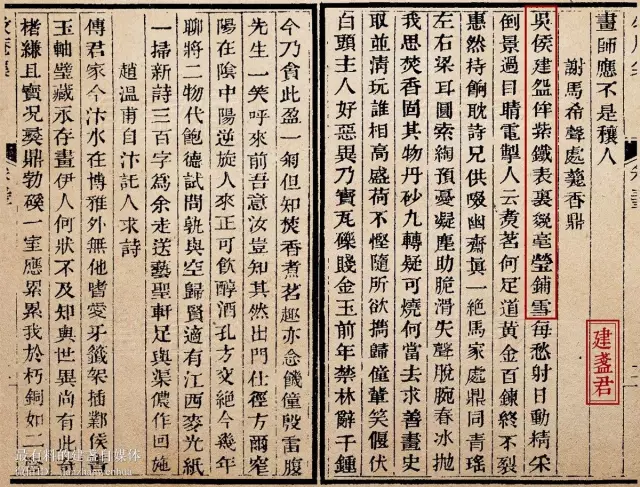 畫師應不是穰人
謝馬希聲處薨香鼎
吳侯建盌侔紫鐵表裏毫瑩鋪雪每愁射日動精采
倒景過目睛電掣人云煑茗何足道黃金百鍊終不裂
惠然持餉耽詩兄供啜幽齋眞一絶馬家處鼎同青瑤
左右梁耳圓索綯預憂凝塵助脆滑失聲脫腕春冰抛
我思焚香固其物丹砂九轉疑可燒何當去求善畫史
取並清玩誰相高盛荷不慳隨所欲擕歸僮輩笑偃伏
白頭主人好惡異乃寶瓦礫賤金玉前年禁林辭千鍾
今乃貪此盈一匊但知焚香煮茗趣亦念饑僮殷雷腹
先生一笑呼來前吾意汝豈知其然出門仕徑方爾窄
陽在陰中陽逆旋人來正可飲醇酒孔方交絶今幾年
聊將二物代飽德試問孰與空歸賢適有江西麥光紙
一掃新詩三百字為余走送藝聖軒足與渠儂作回施
趙溫甫自汴託人求詩
傅君家今汴水在博雅外無他嗜愛牙籤架插鄴侯書
玉軸璧藏承存畫伊人何狀不及知與世異尚有此
楮縑且實况奠鼎勃磎一室應累累我於朽銅如二
建盞君
最有料的建盞自媒体